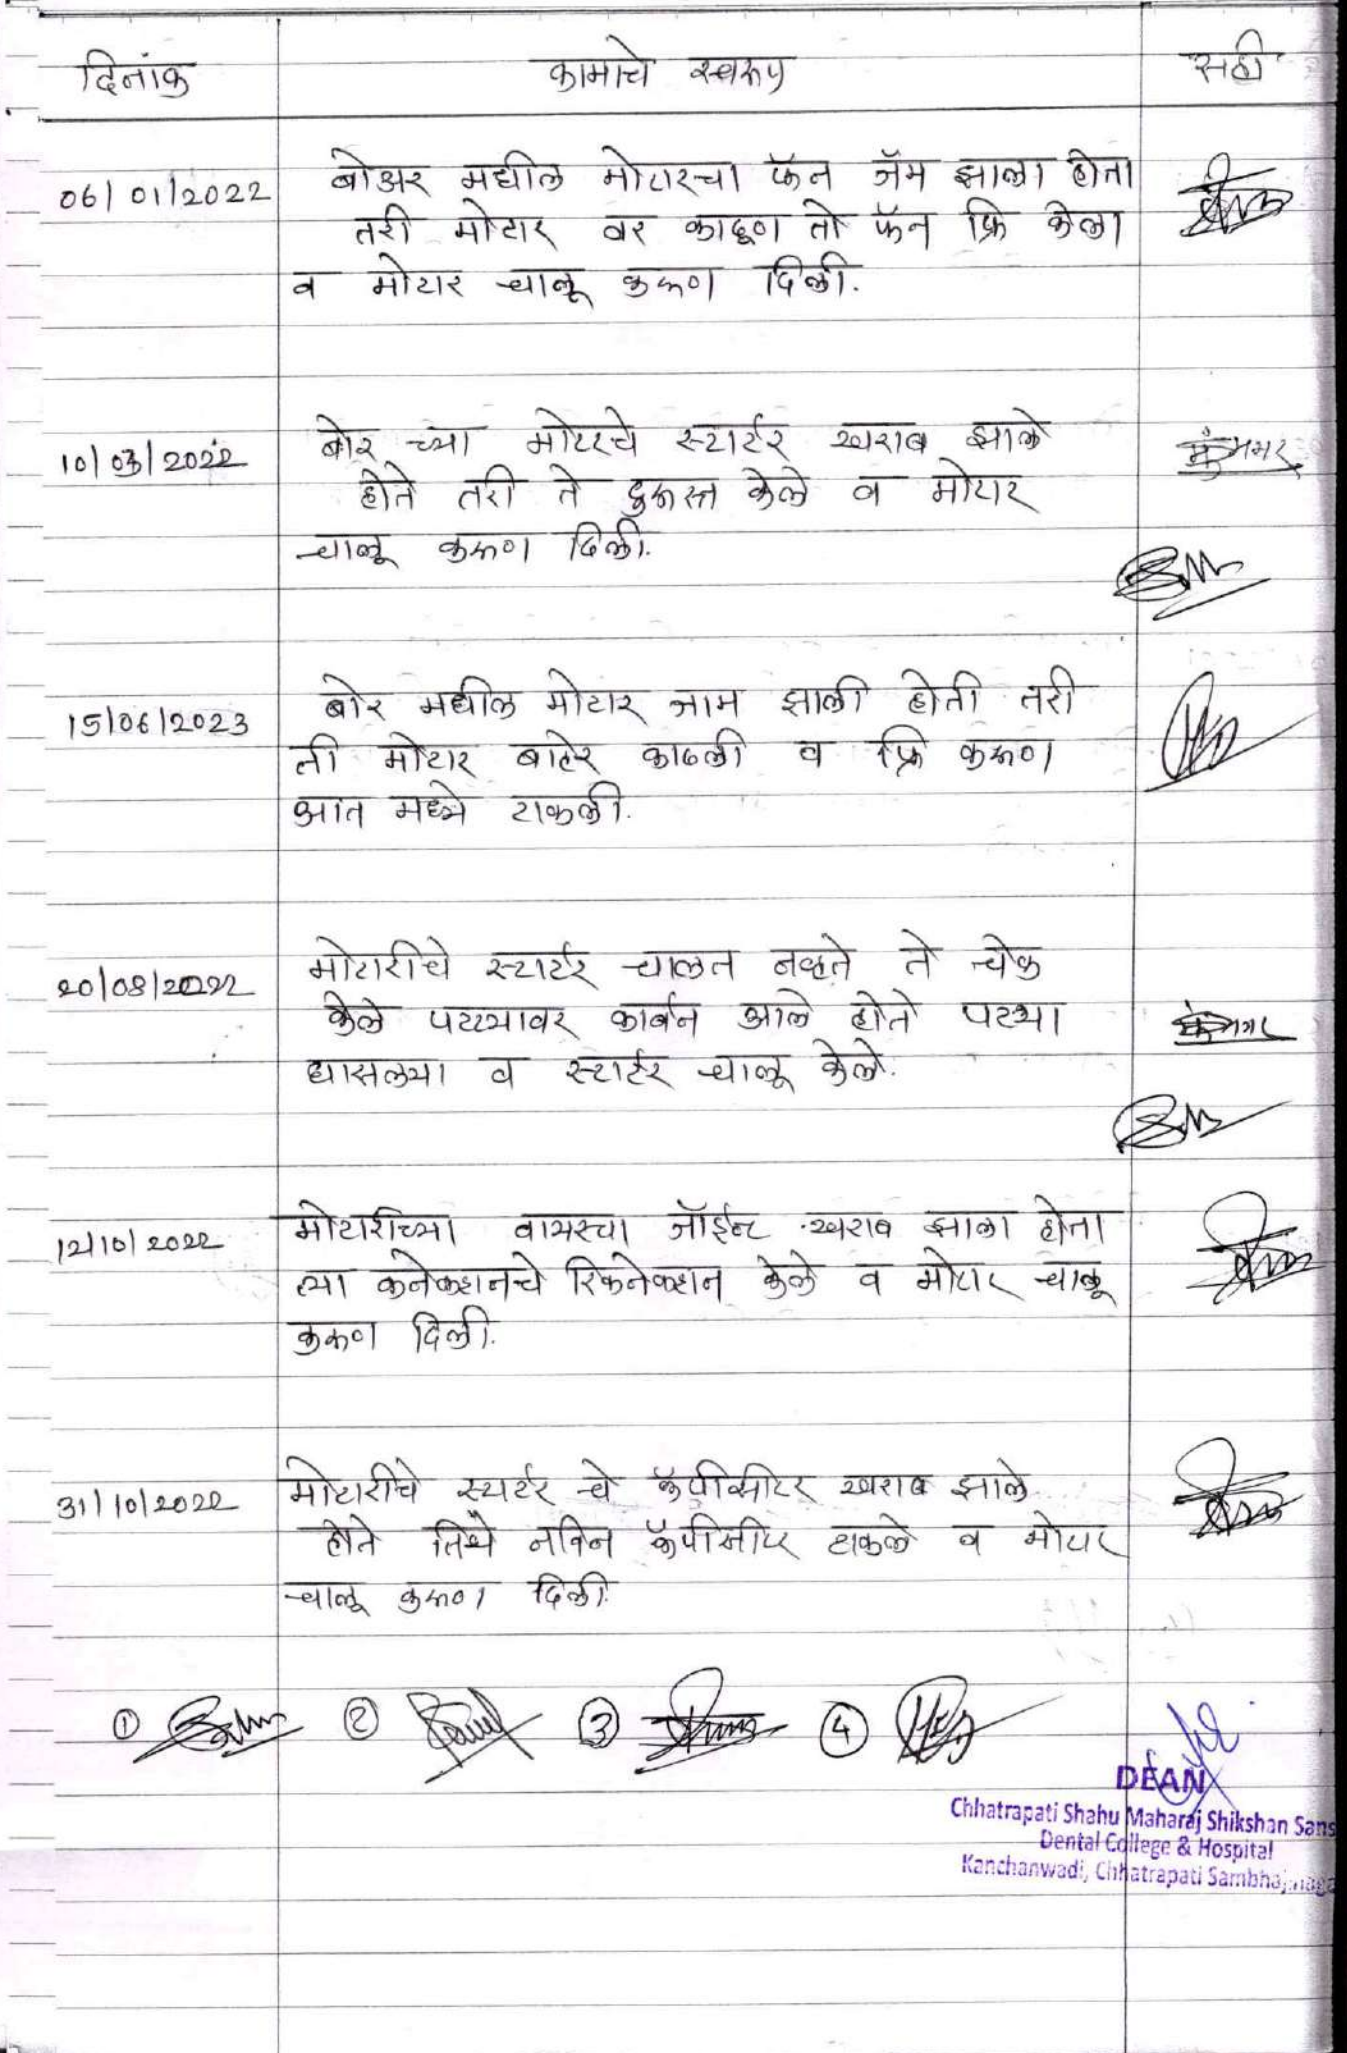 दिनांक कामाचे स्वरूप सही
06/01/2022 बोअर मधील मोटारचा फॅन जॅम झाला होता
तरी मोटार वर काढूण तो फॅन फ्रि केला
व मोटार चालू करूण दिली.
10/03/2022 बोर च्या मोटरचे स्टार्टर खराब झाले
होते तरी ते दुरूस्त केले व मोटार
चालू करूण दिली.
15/06/2023 बोर मधील मोटार जाम झाली होती तरी
ती मोटार बाहेर काढली व फ्रि करूण
आत मध्ये टाकली.
20/08/2022 मोटारीचे स्टार्टर चालत नव्हते ते चेक
केले पटट्यावर कार्बन आले होते पटया
घासल्या व स्टार्टर चालू केले.
12/10/2022 मोटारीच्या वायरचा जॉईन्ट खराब झाला होता
त्या कनेक्शनचे रिकनेक्शन केले व मोटार चालू
करूण दिली.
31/10/2022 मोटारीचे स्टार्टर चे कॅपीसीटर खराब झाले
होते तिथे नविन कॅपीसीटर टाकले व मोटार
चालू करूण दिली.
① ② ③ ④
DEAN
Chhatrapati Shahu Maharaj Shikshan Sans
Dental College & Hospital
Kanchanwadi, Chhatrapati Sambhajinaga